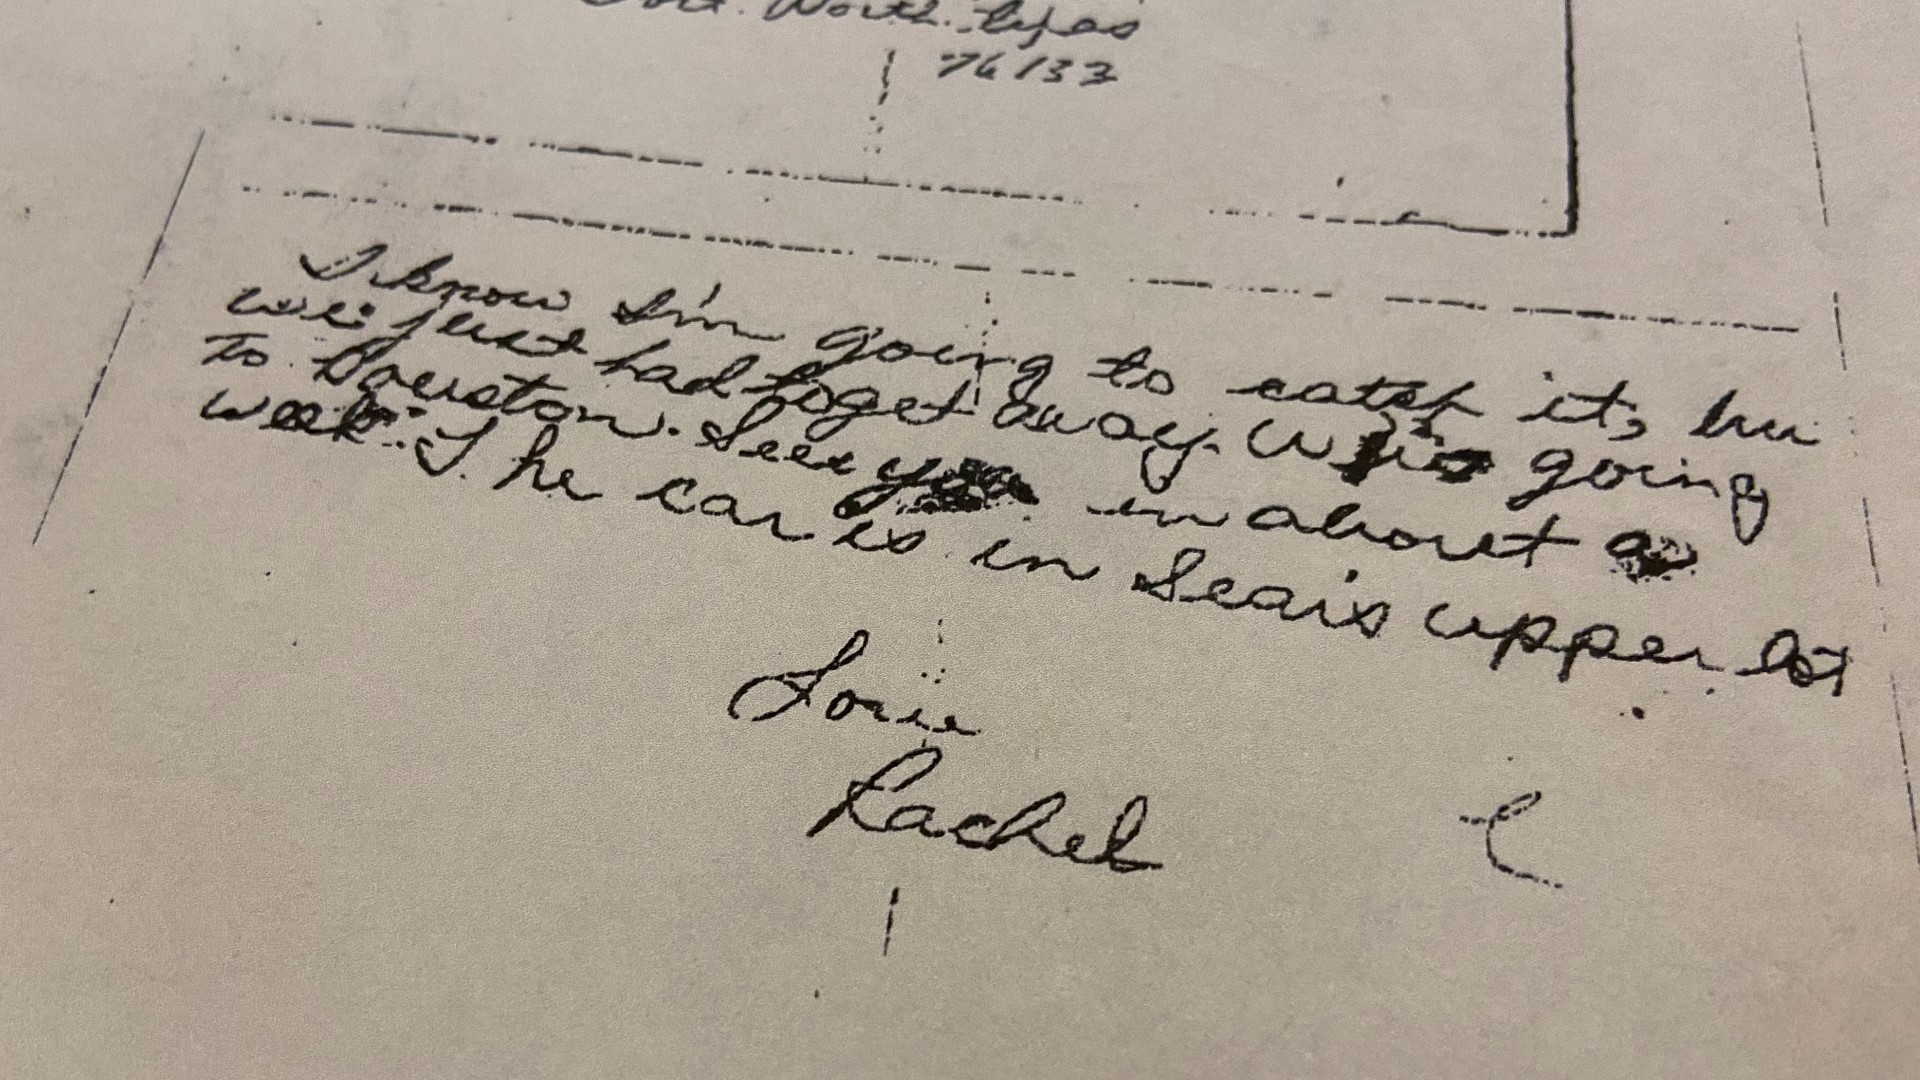 Fort. Worth. Texas
76133
I know I'm going to catch it, bu
we just had to get away. We're going
to Houston. See you in about a
week. The car is in Sears upper lot
Love
Rachel